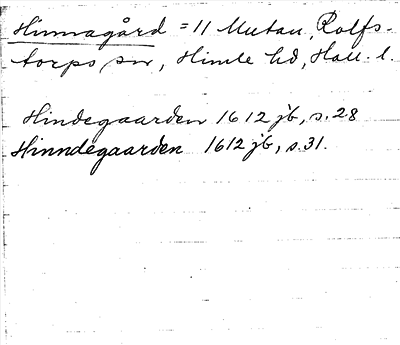 Hinnagård = 11 Mutan, Rolfs-
torps sn, Himle hd, Hall. l.
Hindegaarden 1612 jb, s. 28
Hinndegaarden 1612 jb, s. 31.